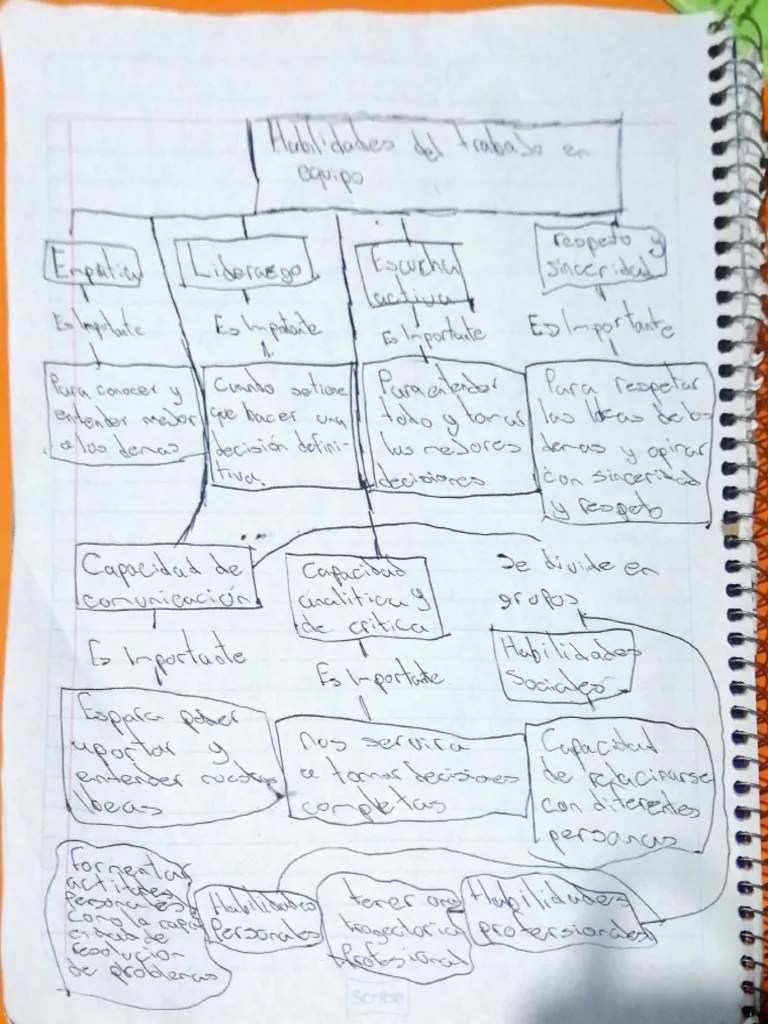 Habilidades del trabajo en
equipo
Empatia
Es Importante
Para conocer y
entender mejor
a los demas
Liderazgo
Es Impotante
Cuando se tiene
que hacer una
decisión defini-
tiva.
Escucha
activa
Es Importante
Para entender
todo y tomar
las mejores
decisiones
respeto y
sinceridad
Es Importante
Para respetar
las Ideas de los
demas y opinar
con sinceridad
y respeto
Capacidad de
comunicación
Es Importante
Es para poder
aportar y
entender nuestras
Ideas
Capacidad
analitica y
de critica
Es Importante
nos servira
a tomar decisiones
completas
Se divide en
grupos
Habilidades
Sociales
Capacidad
de relacinarse
con diferentes
personas
Fomentar
actitudes
personales
como la capa
cidad de
resolucion
de problemas
Habilidades
Personales
tener una
trayectoria
Profesional
Habilidades
profersionales
Scribe